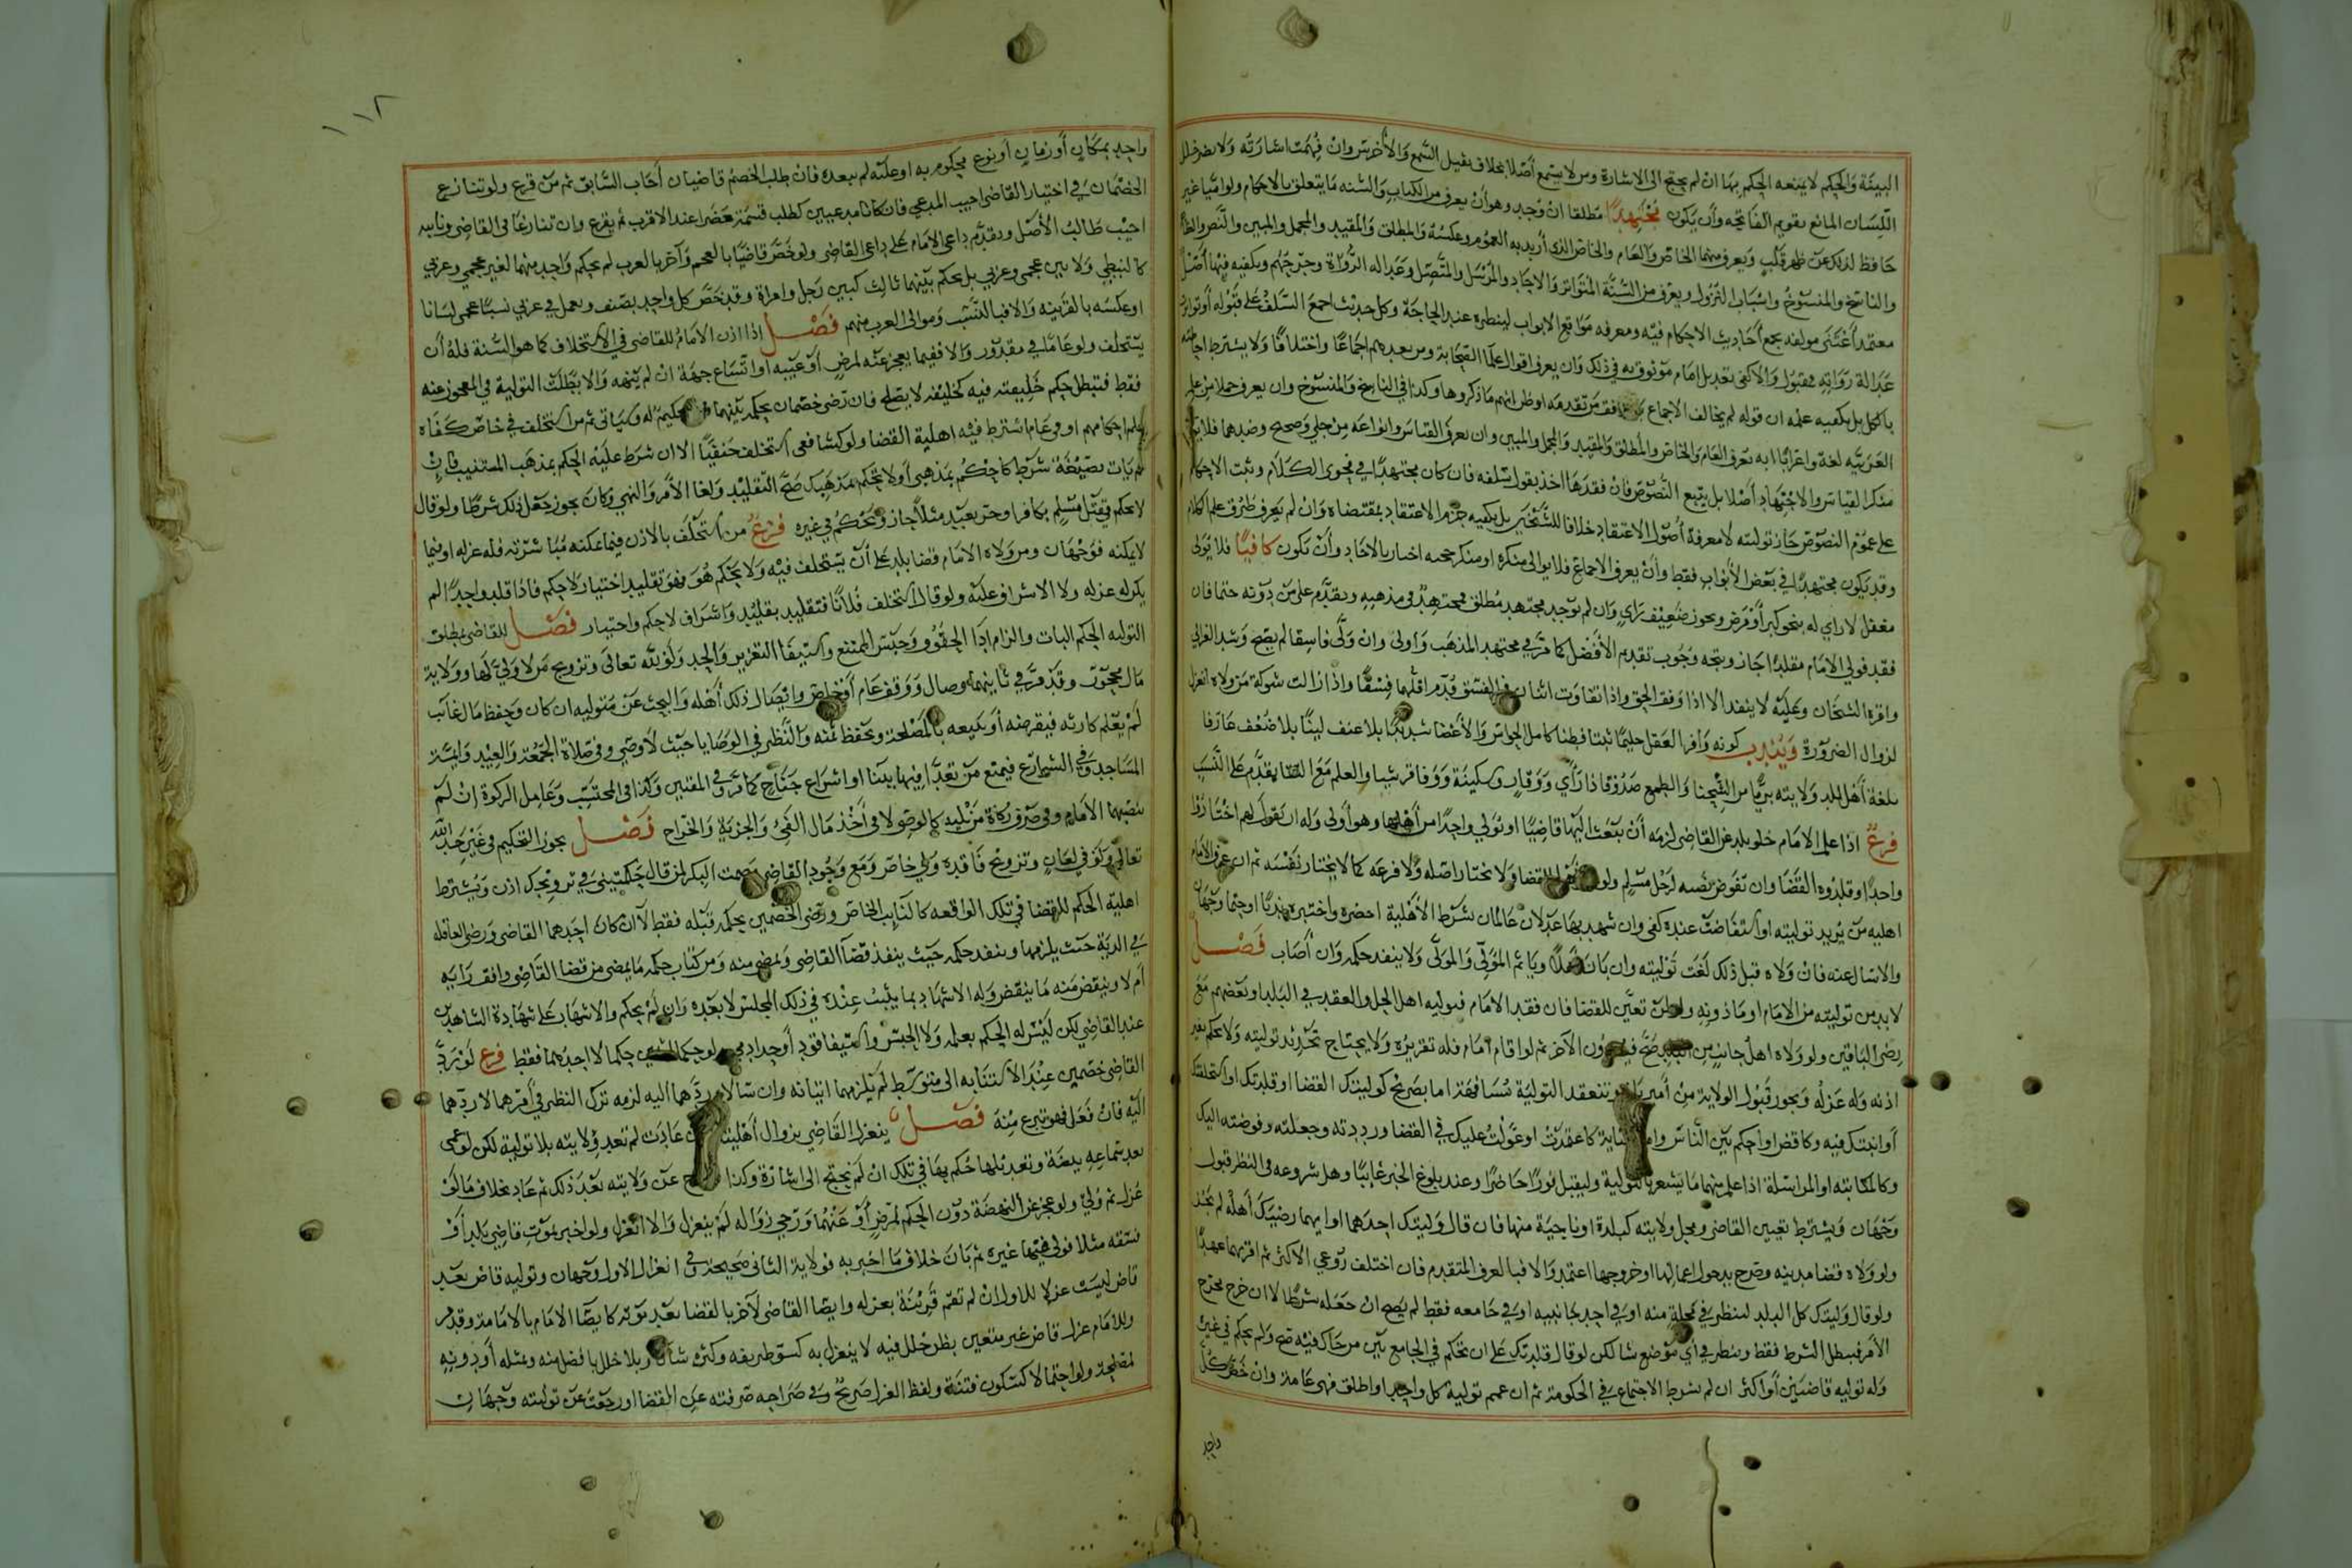 البينة والحكم لا يمنعه الحكم بها ان لم يحتج الى الاشارة ومن لا يسمع أصلا بخلاف ثقيل السمع والأخرس وان فهمت اشارته ولا يضر خلل
اللسان المانع تقويم الفاتحة وأن يكون مُجْتَهِدًا مطلقا ان وُجد وهو أن يعرف من الكتاب والسنه ما يتعلق بالاحكام ولو اميا غير
حافظ لذلك عن ظهر قلب ويعرف منهما الخاص والعام والخاص الذى أريد به العموم وعكسه والمطلق والمقيد والمجمل والمبين والنص والظاهر
والناسخ والمنسوخ واسباب النزول ويعرف من السنة المتواتر والاحاد والمرسل والمتصل وعداله الرواة وجرحهم ويكفيه فيها أصل
معتمد أعتنى مولفه بجمع أحاديث الاحكام فيه ومعرفه مواقع الابواب لينظره عند الحاجة وكل حديث اجمع السلف على قبوله أو تواترت
عدالة رواته فمقبول والا كفى تعديل امام موثوق به في ذلك وان يعرف اقوال علما الصحابة ومن بعدهم اجماعا واختلافا ولا يشترط احاطته
بالكل بل يكفيه علمه ان قوله لم يخالف الاجماع فوافق من تقدمه او ظن انهم ما ذكروها وكذا في الناسخ والمنسوخ وان يعرف جملا من علم
العربيه لغة واعرابا اذ به تعرف العام والخاص والمطلق والمقيد والمجمل والمبين وان يعرف القياس وانواعه من جلي وصحيح وضدهما فلا يتولى
منكر القياس والاجتهاد أصلا بل يتبع النصوص فان فقدها اخذ بقول سلفه فان كان مجتهدا في فحوى الكلام وثبت الاحكام
على عموم النصوص جاز توليته لا معرفة أصول الاعتقاد خلافا للشيخين بل يكفيه جزم الاعتقاد بمقتضاه وان لم يعرف طرق علم الكلام
وقد يكون مجتهدا في بعض الأبواب فقط وان يعرف الاجماع فلا يولى منكره او منكر حجيه اخبار بالاحاد وأن تكون كافيًا فلا يولى
مغفل لا راي له بنحو كبر أو مرض ويجوز ضعيف راي وان لم يوجد مجتهد مطلق فمجتهد في مذهبه ويقدم على من دونه حتما فان
فقد فولى الامام مقلدا جاز ويتجه وجوب تقديم الأفضل كما مر في مجتهد المذهب وأولى وان ولى فاسقا لم يصح وشذ الغزالى
واقره الشيخان وعليه لا ينفذ الا اذا وفق الحق واذا تفاوت اثنان في الفسق قدم اقلهما فسقا واذا زالت شوكة من ولاه انعزل
لزوال الضرورة ويندب كونه وافر العقل حليما ثبتا فطنا كامل الحواس والأعضا شديدا بلا عنف لينا بلا ضعف عارفا
بلغة أهل بلد ولايته بريّا من الشحنا والطمع صدوقا ذا رأي ووقار وسكينة ووفا قرشيا والعلم مع التقا يقدم على النسب
فرع اذا علم الامام خلو بلد عن القاضى لزمه أن يبعث اليها قاضيا او يولي واحدا من أهلها وهو أولى وله ان يقول لهم اختاروا
واحدا وقلدوه القضا وان تفوض نصبه لرجل مسلم ولو للقضا ولا يختار اصله ولا فرعه كما لا يختار نفسه ثم ان عرف الامام
اهليه من يريد توليته او استفاضت عنده كفى وان شهد بها عدلان عالمان بشرط الأهلية احضره واختبره ندبا او حتما وجهان
والا سال عنه فان ولاه قبل ذلك لغت توليته وان بان اهلا وياثم المولي والمولى ولا ينفذ حكمه وان أصاب فصل
لا بد من توليته من الامام او ماذونه ولو لمن تعين للقضا فان فقد الامام فبوليه اهل الحل والعقد في البلد او بعضهم مع
رضى الباقين ولو ولاه اهل جانب من البلد صح فيه دون الآخر ثم لو اقام امام فله تقريره ولا يحتاج تجديد توليته ولا يحكم بغير
اذنه وله عزله ويجوز قبول الولاية من أمير وتنعقد التولية مشافهة اما بصريح كوليتك القضا او قلدتك او استخلفتك
أو انبتك فيه وكاقض او أحكم بين الناس واما كناية كاعتمدت او عولت عليك في القضا ورددته وجعلته وفوضته اليك
وكالمكاتبة او المراسلة اذا علم منهما ما يشعر بالتولية وليقبل فورا حاضرا وعند بلوغ الخبر غايبا وهل شروعه فى النظر قبول
وجهان ويشترط تعيين القاضى ومحل ولايته كبلدة او ناحية منها فان قال وليتك احدهما او ايهما رضيك أهله لم يجز
ولو ولاه قضا مدينه وصرح بدخول اعمالها او خروجها اعتمد والا فبا لعرف المتقدم فان اختلف روعي الاكثر ثم اقربهما عهدا
ولو قال وليتك كل البلد لتنظر في محلة منه او في احد جانبيه او في جامعه فقط لم يصح ان جعله شرطا لا ان خرج مخرج
الأمر فيبطل الشرط فقط وينظر في أي موضع شا لكن لو قال قلدتك على ان تحكم في الجامع بين من جاك فيه صح ولم يحكم في غيره
وله توليه قاضيين أو اكثر ان لم يشرط الاجتماع في الحكومة ثم ان عمم توليه كل واحد او اطلق فهى عامة وان خص كل
واحد
١١٢
واحد بمكان أو زمان أو نوع محكوم به او عليه لم يعده فان طلب الخصم قاضيان أجاب السابق ثم من قرع ولو تنازع
الخصمان في اختيار القاضى اجيب المدعي فان كانا مدعيين كطلب قسمة حضرا عند الاقرب ثم يقرع وان تنازعا فى القاضى ونايبه
اجيب طالب الأصل ويقدم داعي الامام على داعى القاضى ولو خص قاضيا بالعجم وآخر بالعرب لم يحكم واحد منهما لغير عجمي وعربي
كالنبطي ولا بين عجمى وعربي بل يحكم بينهما ثالث كبين رجل وامراة وقد خص كل واحد بصنف ويعمل في عربي نسبا عجمى لسانا
او عكسه بالقرينه والا فبا لنسب وموالى العرب منهم فصل اذا اذن الامام للقاضى في الاستخلاف كما هو السنة فله أن
يستخلف ولو عاما في مقدور والا ففيما يعجز عنه لمرض أو غيبه او اتساع جهة ان لم ينهه والا بطلت التولية في المعجوز عنه
فقط فتبطل حكم خليفته فيه كخليفه لا يصلح فان رضى خصمان بحكمه بينهما تحكيم له وسياتى ثم من استخلف في خاص كفاه
علم احكامهم او في عام اشترط فيه اهلية القضا ولو كشافعى استخلف حنفيا الا ان شرط عليه الحكم بمذهب المستنيب فان
لم يات بصيغة شرط كاحكم بمذهبى أو لا تحكم بمذهبك صح التقليد ولغا الأمر والنهى وكان يجوز جعل ذلك شرطا ولو قال
لا تحكم في قتل مسلم بكافر او حر بعبد مثلا جاز ويحكم في غيره فرع من استخلف بالاذن فيما يمكنه مباشرته فله عزله او فيما
لا يمكنه فوجهان ومن ولاه الامام قضا بلد على أن يستخلف فيه ولا يحكم هو فهو تقليد اختيار لا حكم فاذا قلد واحدا لم
يكن له عزله ولا الاشراف عليه ولو قال استخلف فلانا فتقليد بقليد واشراف لا حكم واختيار فصل للقاضى بمطلق
التوليه الحكم البات والزام ادا الحقوق وحبس الممتنع واستيفا التعزير والحد ولو لله تعالى وتزويج من لا ولي لها وولاية
مال محجور وقد مر في ثانيتهما وصال ووقف عام أو خاص وايصال ذلك أهله والبحث عن متوليه ان كان وحفظ مال غايب
لم يعلم كارثه فيقرضه أو يبيعه بالمصلحة ويحفظ ثمنه والنظر في الوصايا حيث لا وصي وفي صلاة الجمعة والعيد وايمة
المساجد وفي الشوارع فيمنع من تعدا فيها ببنا او اشراع جناح كما مر وفي المفتين وكذا في المحتسب وعامل الزكوة ان لم
ينصبهما الامام وفى صرف زكاة من يليه كالوصي لا فى أخذ مال الفئ والجزية والخراج فصل يجوز التحكيم فى غير حد الله
تعالى ولو في لعان وتزويج فاقده ولي خاص ومع وجود القاضى بصمت البكر لمن قال حكمتينى في تزويجك اذن ويشترط
اهلية الحكم للقضا في تلك الواقعه كالنايب الخاص ورضى الخصمين بحكمه قبله فقط لا ان كان احدهما القاضى ورضى العاقله
في الدية حيث يلزمها وينفذ حكمه حيث ينفذ قضا القاضى ويمضى منه ومن كتاب حكمه ما يمضى من قضا القاضى وافق رايه
أم لا وينقض منه ما ينقض وله الاشهاد بما يثبت عنده في ذلك المجلس لا بعده وان لم يحكم والاشهاد على شهادة الشاهدين
عند القاضي لكن ليس له الحكم بعلمه ولا الحبس واستيفا قود أو حد ولو حكما لاثنين حكما لا احدهما فقط فرع لو رد
القاضى خصمين عند الاستنابه الى متوسط لم يلزمهما اتيانه وان سالا ردهما اليه لزمه ترك النظر في أمرهما لا ردهما
اليه فان فعل فهو تبرع منه فصل ينعزل القاضى بزوال أهليته عادت لم تعد ولايته بلا تولية لكن لو عمى
بعد سماعه بينة وتعديلها حكم بها في تلك ان لم يحتج الى اشارة وكذا عن ولايته بعد ذلك ثم عاد بخلاف ما لو
عزل ثم ولي ولو عجز عن النهضة دون الحكم لمرض أو عنهما ورجي زواله لم ينعزل والا انعزل ولو اخبر بموت قاضي بلد أو
فسقه مثلا فولى فيها غيره ثم بان خلاف ما اخبر به فولاية الثانى صحيحة وفى انعزال الاول وجهان وتوليه قاض بعد
قاض ليست عزلا للاول ان لم تقم قرينة بعزله وايضا القاضى لآخر بالقضا بعد موته كايصا الامام بالامامة وقد مر
وللامام عزل قاض غير متعين بظن خلل فيه لا ينعزل به كسو طريقه وكثرة شاك وبلا خلل بافضل منه وبمثله أو دونه
لمصلحة ولو احتمالا كسكون فتنة ولفظ العزل صريح وفي صراحه صرفته عن القضا او رجعت عن توليته وجهان